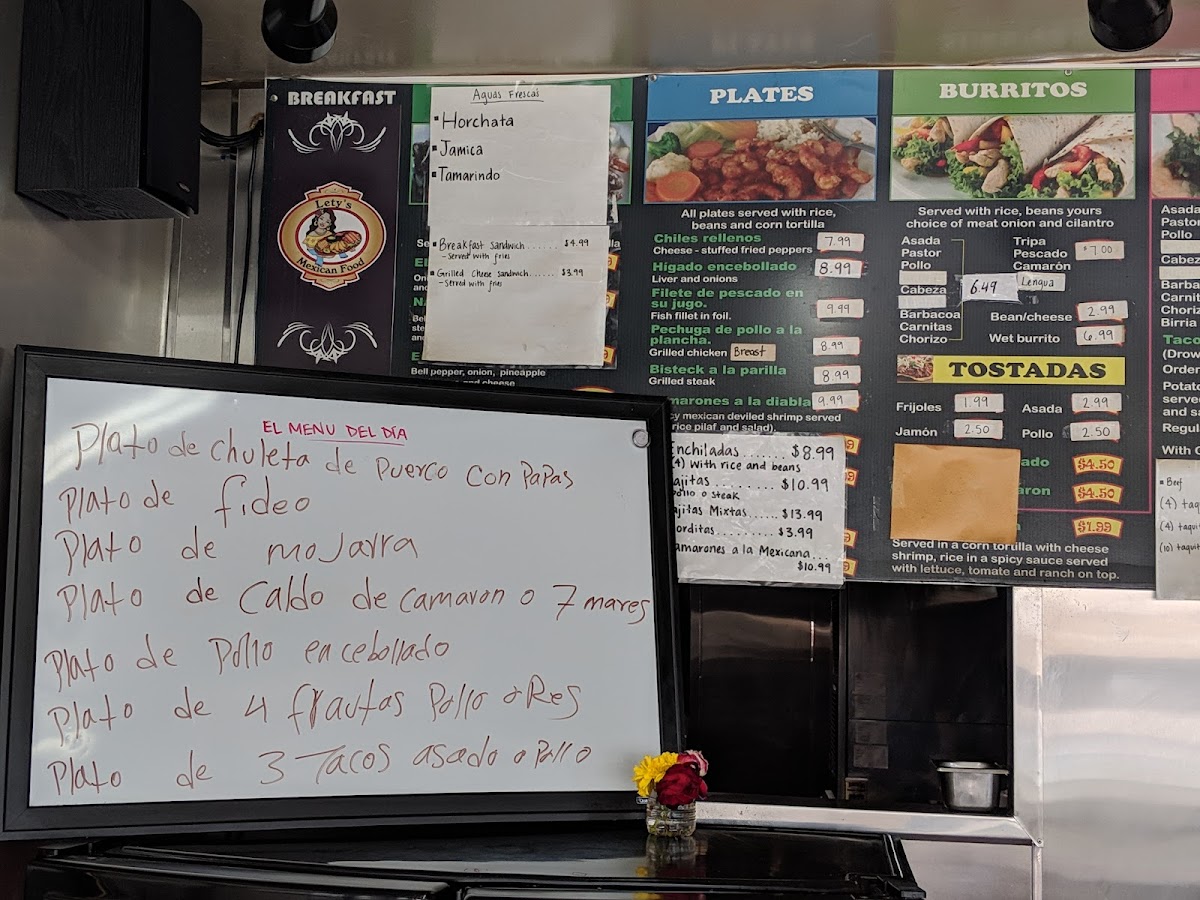 BREAKFAST
Lety's
Mexican Food
Aguas Frescas
Horchata
Jamica
Tamarindo
Breakfast sandwich........ $4.99
- served with fries
Grilled cheese sandwich...... $3.99
- served with fries
Bell pepper, onion, pineapple
and cheese
PLATES
All plates served with rice,
beans and corn tortilla
Chiles rellenos 7.99
Cheese - stuffed fried peppers
Hígado encebollado 8.99
Liver and onions
Filete de pescado en
su jugo. 9.99
Fish fillet in foil.
Pechuga de pollo a la
plancha. 8.99
Grilled chicken Breast
Bisteck a la parilla 8.99
Grilled steak
marones a la diabla 9.99
cy mexican deviled shrimp served
rice pilaf and salad).
nchiladas ....... $8.99
(4) with rice and beans
ajitas ......... $10.99
pollo o steak
ajitas Mixtas ...... $13.99
orditas ......... $3.99
amarones a la Mexicana ...
$10.99
BURRITOS
Served with rice, beans yours
choice of meat onion and cilantro
Asada
Pastor
Pollo
Cabeza
Barbacoa
Carnitas
Chorizo
6.49
Tripa
Pescado
Camarón
Lengua
$7.00
Bean/cheese 2.99
Wet burrito 6.99
TOSTADAS
Frijoles 1.99
Jamón 2.50
Asada 2.99
Pollo 2.50
ado $4.50
aron $4.50
$1.99
Served in a corn tortilla with cheese
shrimp, rice in a spicy sauce served
with lettuce, tomato and ranch on top.
Asada
Pastor
Pollo
Cabez
Barba
Carnit
Choriz
Birria
Taco
(Drow
Order
Potat
serve
and sa
Regul
With C
Beef
(4) taq
(4) taqu
(10) taquit
EL MENU DEL DÍA
Plato de chuleta de puerco con papas
Plato de fideo
Plato de moJarra
Plato de Caldo de camaron o 7 mares
Plato de pollo encebollado
Plato de 4 frautas Pollo o Res
Plato de 3 Tacos asado o pollo